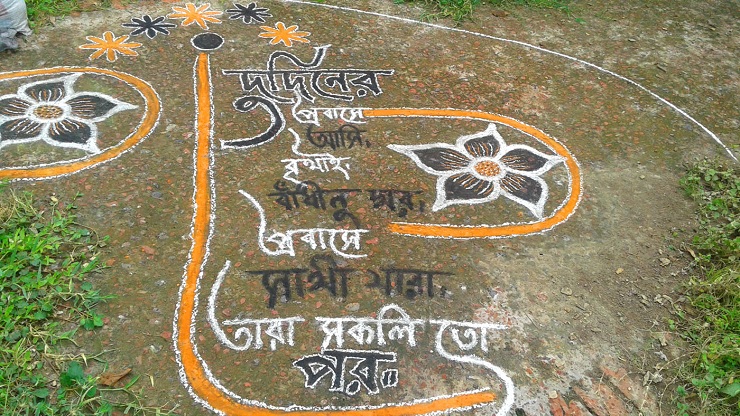 দুদিনের
প্রবাসে
আসি,
বৃথাই
বাঁধিনু ঘর,
প্রবাসে
সাথী যারা,
তারা সকলি তো
পর॥